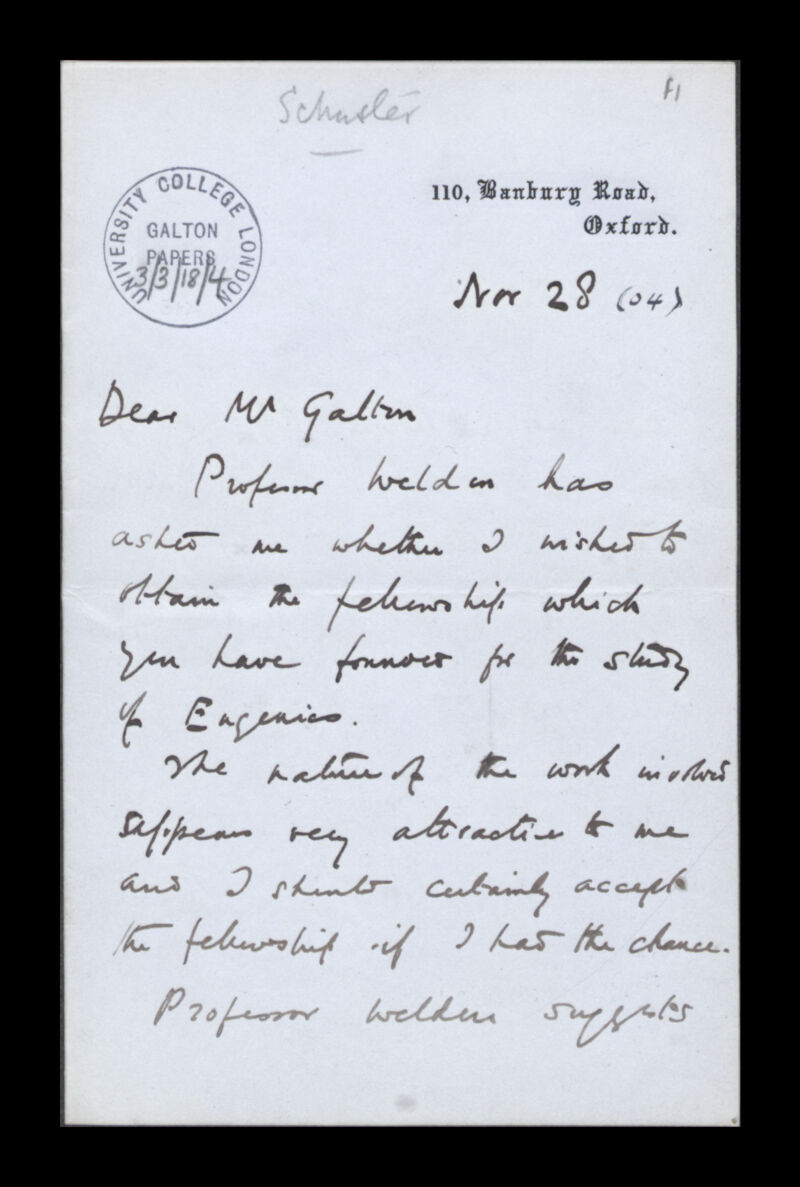 Schuster
f1
UNIVERSITY COLLEGE LONDON
GALTON
PAPERS
3/3/18/4
110, Banbury Road,
Oxford.
Nov 28 (04)
Dear Mr Galton
Professor Weldon has
asked me whether I wished to
obtain the fellowship which
you have founded for the study
of Eugenics.
The nature of the work involved
appears very attractive to me
and I should certainly accept
the fellowship if I had the chance.
Professor Weldon suggests